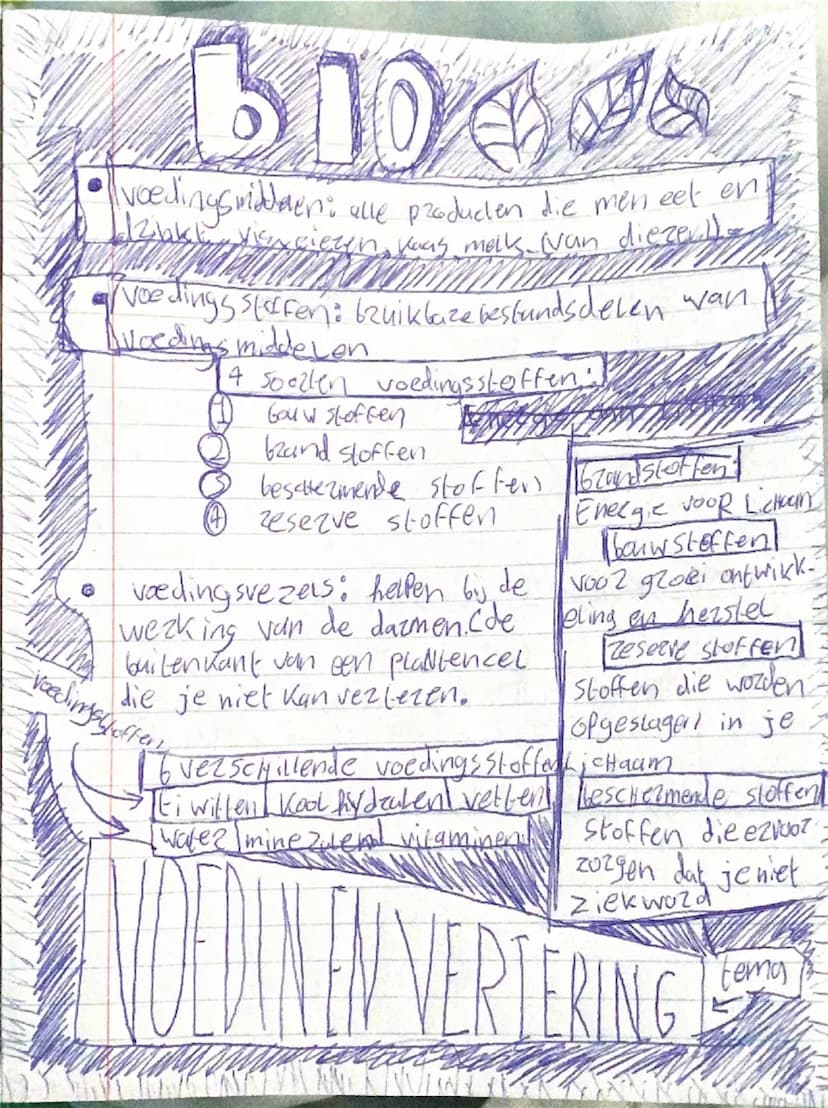 bio
voedingsmiddelen: alle producten die men eet en
drinkt. kaas melk (van dieren)
voedingsstoffen: bruikbare bestandsdelen van
voedingsmiddelen
4 soorten voedingsstoffen:
1 bouwstoffen
2 brandstoffen
3 beschermende stoffen
4 reserve stoffen
voedingsvezels: helpen bij de
werking van de darmen. (de
buitenkant van een plantencel
die je niet kan verteren.
voedingsstoffen
6 verschillende voedingsstoffen
Eiwitten koolhydraten vetten
water mineralen vitaminen
brandstoffen:
Energie voor Lichaam
bouwstoffen
voor groei ontwikk-
eling en herstel
reserve stoffen
stoffen die worden
opgeslagen in je
Lichaam
beschermende stoffen
stoffen die ervoor
zorgen dat je niet
ziek word
VOEDIN EN VERTERING
tema